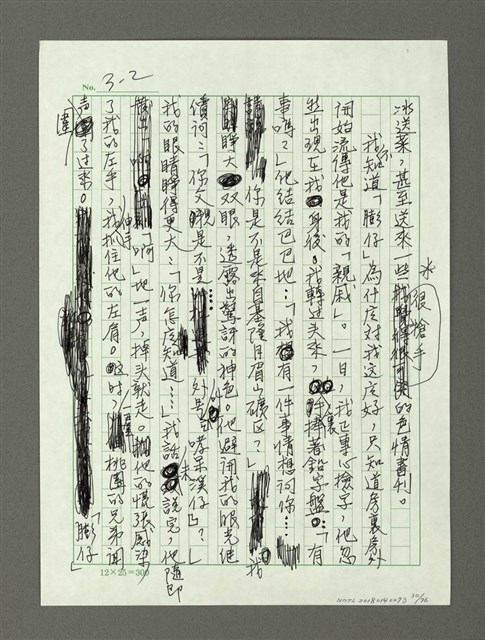 No. 3-2
冰送菜，甚至送來一些很搶手的色情書刊。
我不知道「膨仔」為什麼對我這麼好，只知道房裏房外
開始流傳他是我的「親戚」。一日，我正專心檢字，他忽
然出現在我身後。我轉过头來，捧著鉛字盤。「有
事嗎？」他結結巴巴地：「我想有一件事情想问你……
你是不是來自基隆月眉山礦区？」我
睜大双眼，透露出驚訝的神色。他避開我的眼光继
續问：「你父親是不是……外号叫『哮呆溪仔』？」
我的眼睛睜得更大：「你怎麼知道……」我話未說完，他隨即
「啊」地一声，掉头就走。他的慌張感染
了我的左手，伸手抓住他的左肩。這时，一羣桃園的兄弟调
圍了过來。「膨仔」
12×25=300